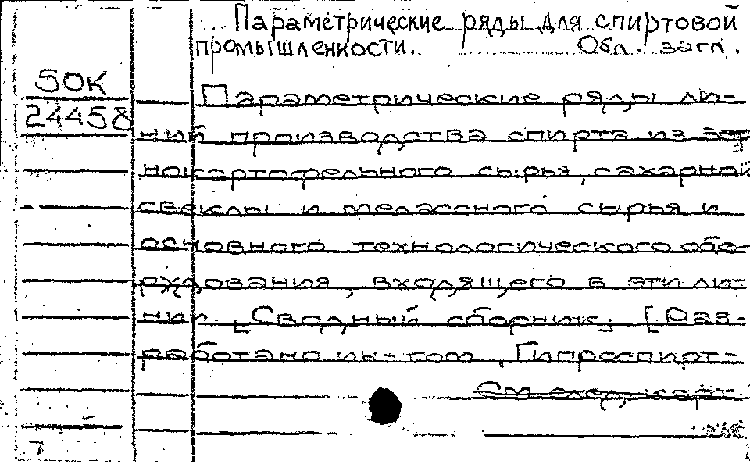 Параметрические ряды для спиртовой
промышленности. Обл. загл.
50К
24458
Параметрические ряды ли-
ний производства спирта из зер-
нокартофельного сырья, сахарной
свеклы и мелассного сырья и
основного технологического обо-
рудования, входящего в эти ли-
нии. [Сводный сборник]. [Раз-
работано ин-том „Гипроспирт-
См. след. карт.
7